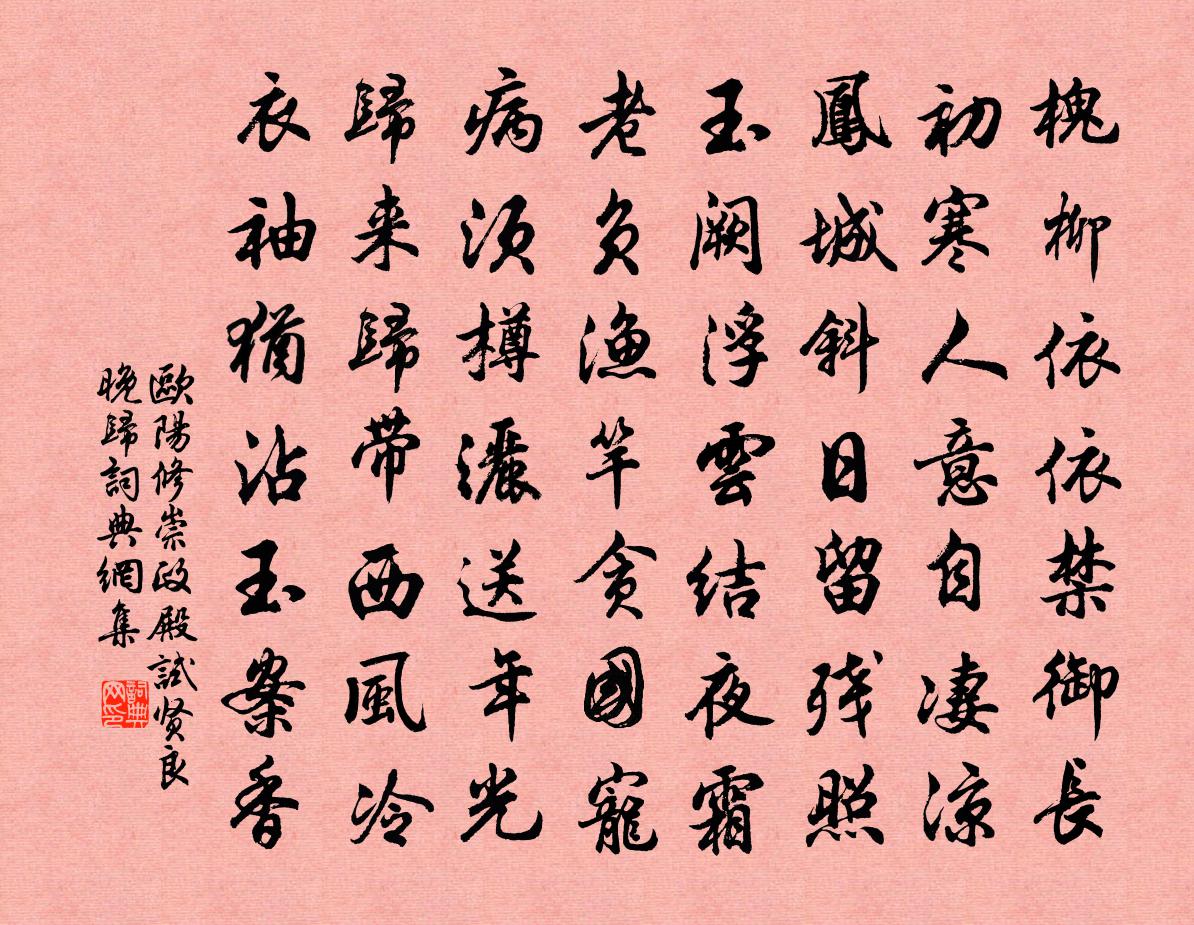 槐柳依依禁御長
初寒人意自凄凉
鳳城斜日留残照
玉阙浮雲结夜霜
老负渔竿贪國寵
病须樽灑送年光
歸来歸带西風冷
衣袖猶沾玉案香
歐陽修崇政殿試贤良
晚歸詞典網集
詞典网印